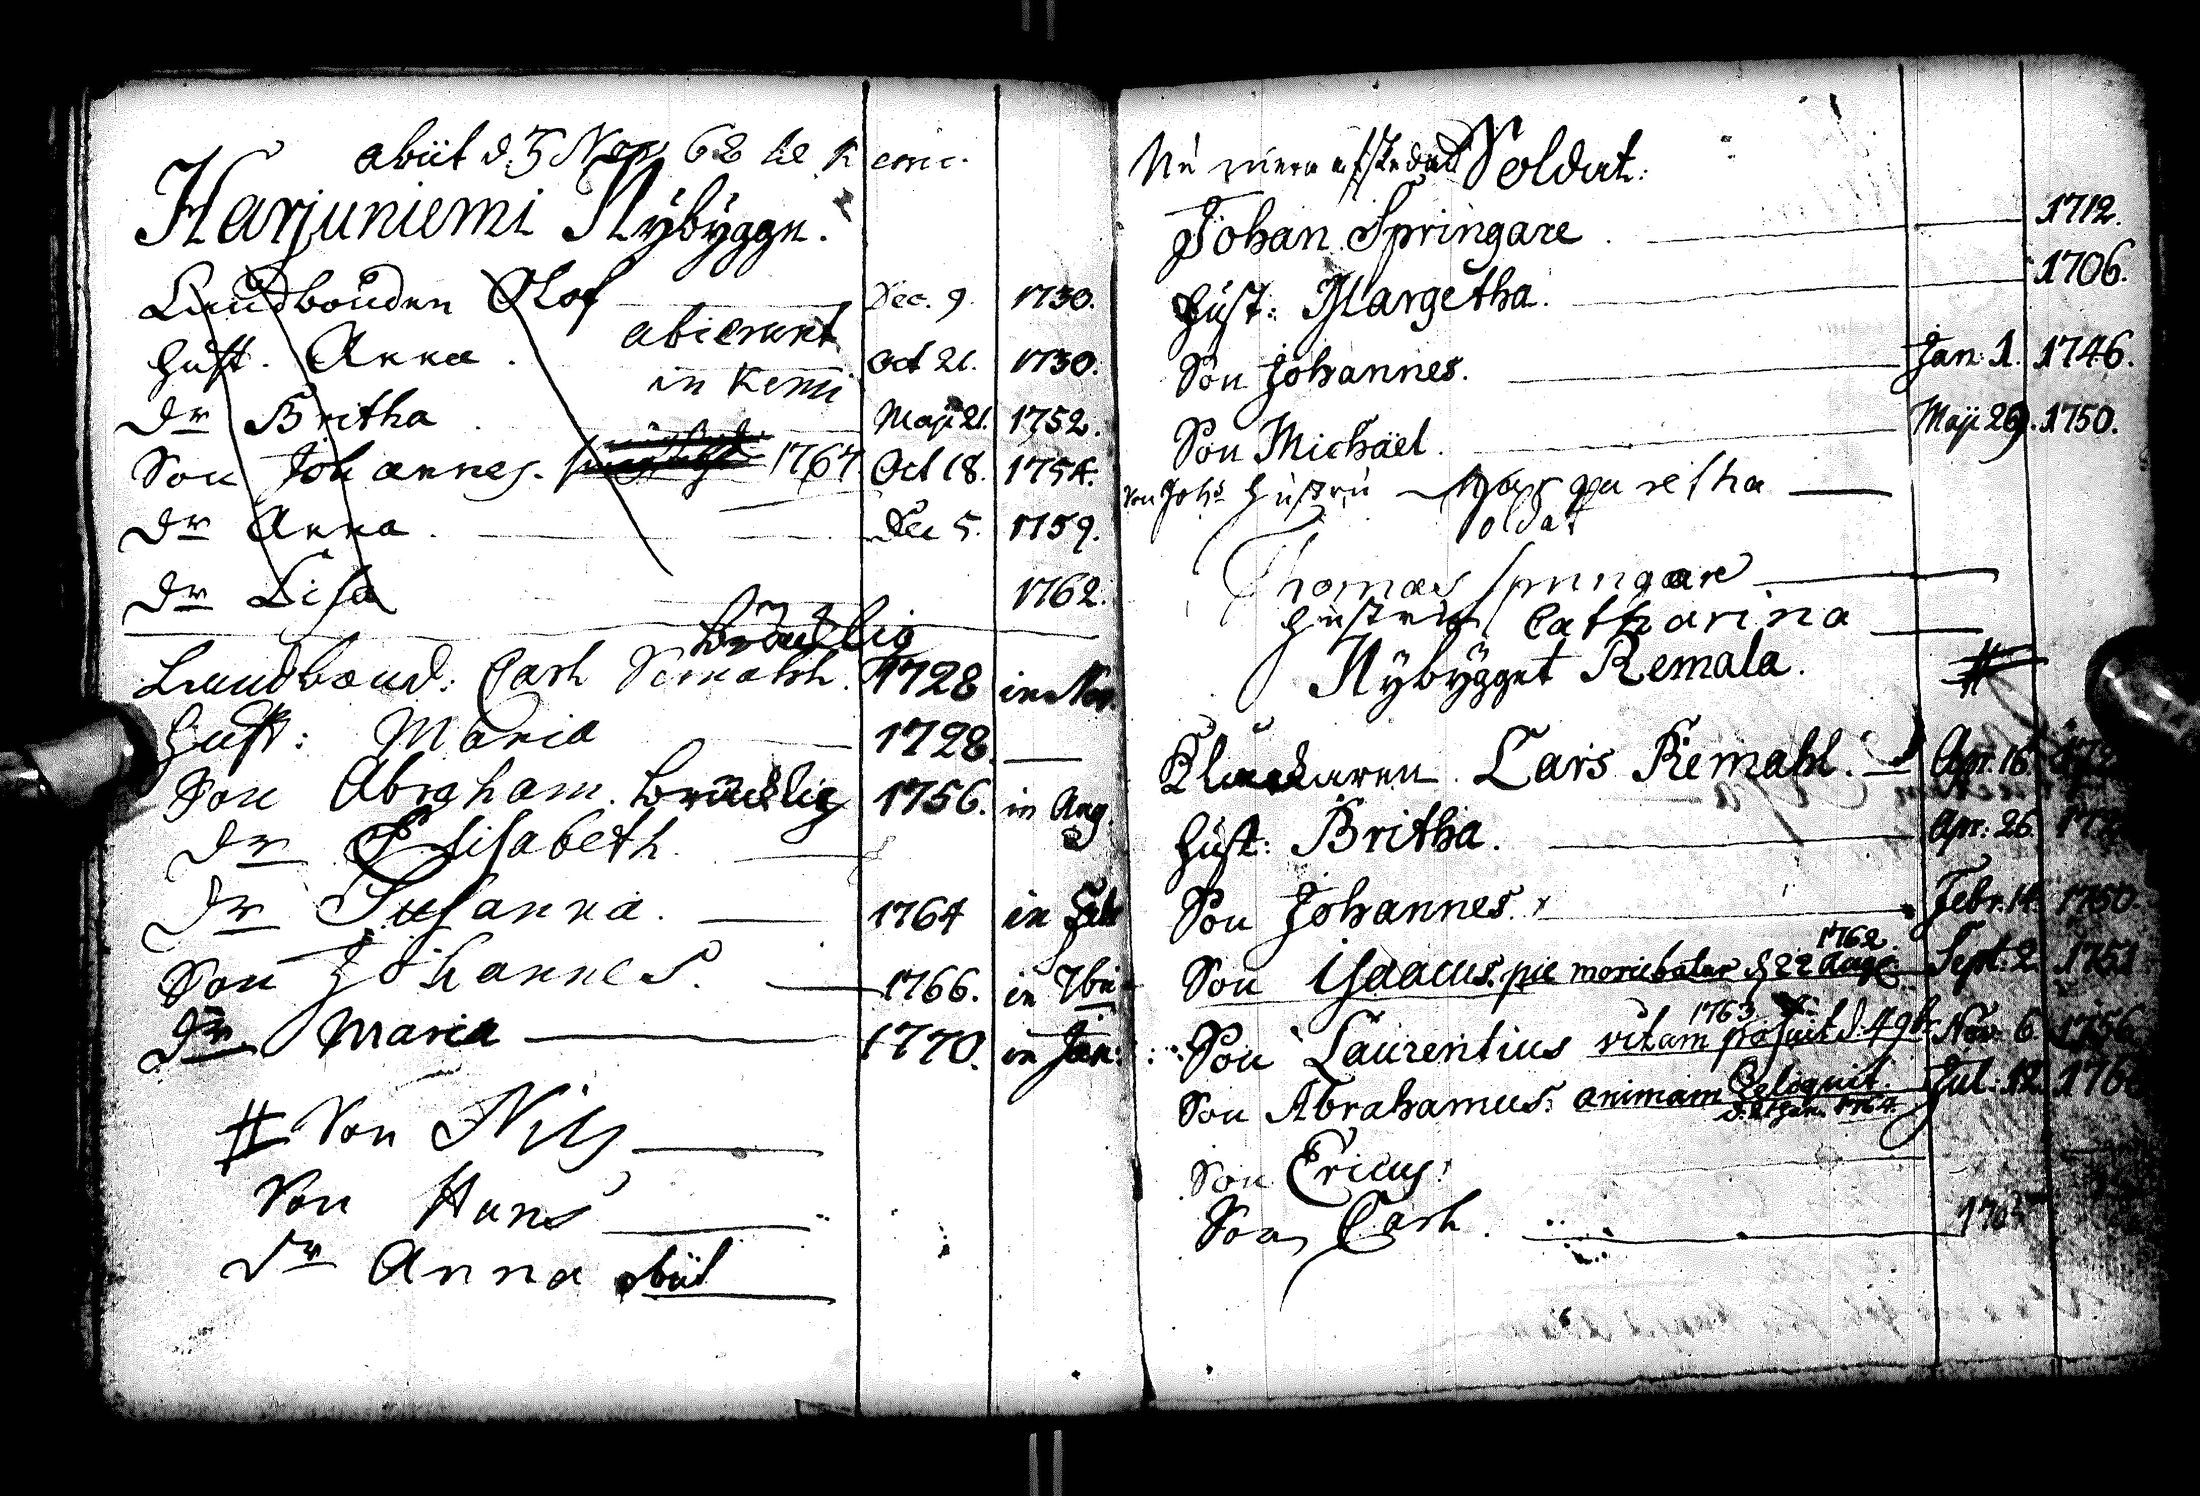 abiit d. 5 Nov. 62 til Kemi.
Harjuniemi Nÿbÿgge.
Landbonden Olof Dec. 9. 1730.
abierunt
Hust. Anna. Oct 21. 1730.
in Kemi
Dr Britha Maji 21. 1752.
Son Johannes. 1767 Oct 18. 1754.
Dr Anna. Dec 5. 1759.
Dr Lisa 1762.
Landbond: Carl 1728 in Nov.
Hust: Maria 1728.
Son Abraham. 1756. in Aug.
Dr Elisabeth.
Dr Susanna. 1764 in Feb
Son Johannes. 1766. in
Dr Maria 1770. in Jan:
# Son Nils
Son Hans
Dr Anna obiit
Nu mera afskedad Soldat.
Johan Springare. 1712.
Hust: Margetha. 1706.
Son Johannes. Jan: 1. 1746.
Son Michäel. Maji 29. 1750.
Son Johs Hustru Margaretha
Soldat
Thomas Springare
Hustru Catharina
Nÿbÿgget Remala. #
Klockaren Lars Remahl. Apr. 16.
Hust: Britha. Apr: 26.
Son Johannes. Febr. 14. 1750
1762.
Son Isaacus. pie moriebatur d. 22 Aug. Sept: 2. 1751
1763
Son Laurentius vitam posuit d. 4 9br Nov. 6. 1756
Son Abrahamus: animam reliquit. Jul: 12.
Jan. 1764.
Son Ericus.
Son Carl.